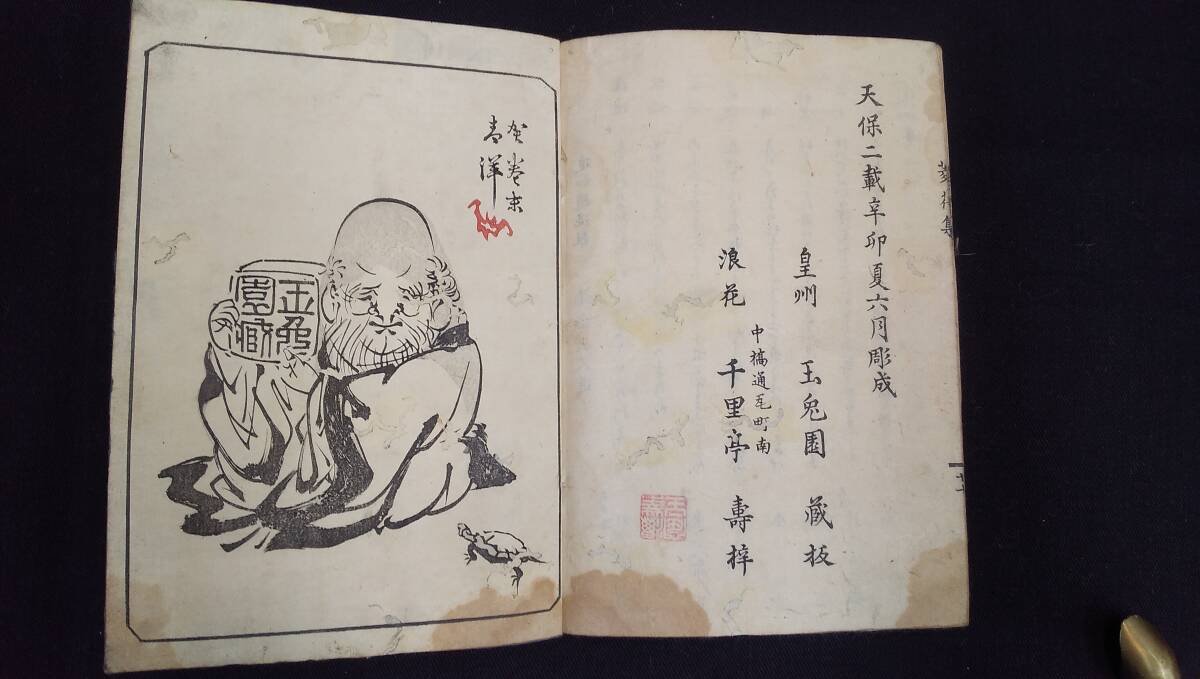 天保二載辛卯夏六月彫成
皇州 玉兎園 蔵板
中橋通瓦町南
浪花 千里亭 壽梓
賀巻末
春洋
玉兎
園蔵